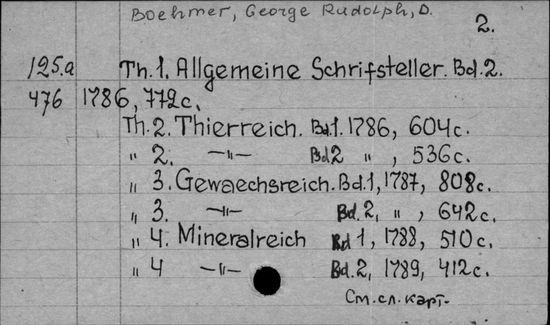 Boehmer, George Rudolph, D.
2.
125.a Th.1. Allgemeine Schrifsteller. Bd.2.
476 1786, 772c.
Th.2. Thierreich. Bd.1. 1786, 604c.
" 2. —"— Bd.2 " , 536c.
" 3. Gewaechsreich. Bd.1, 1787, 808c.
" 3. —"— Bd.2, " , 642c.
" 4. Mineralreich Bd 1, 1788, 510c.
" 4 —"— Bd.2, 1789, 412c.
См. сл. карт.